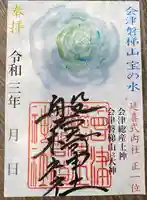 会津磐梯山 宝の水
延喜式内社 正一位
会津総産土神
会津磐梯山天神
奉拝
磐椅神社
令和三年 月 日